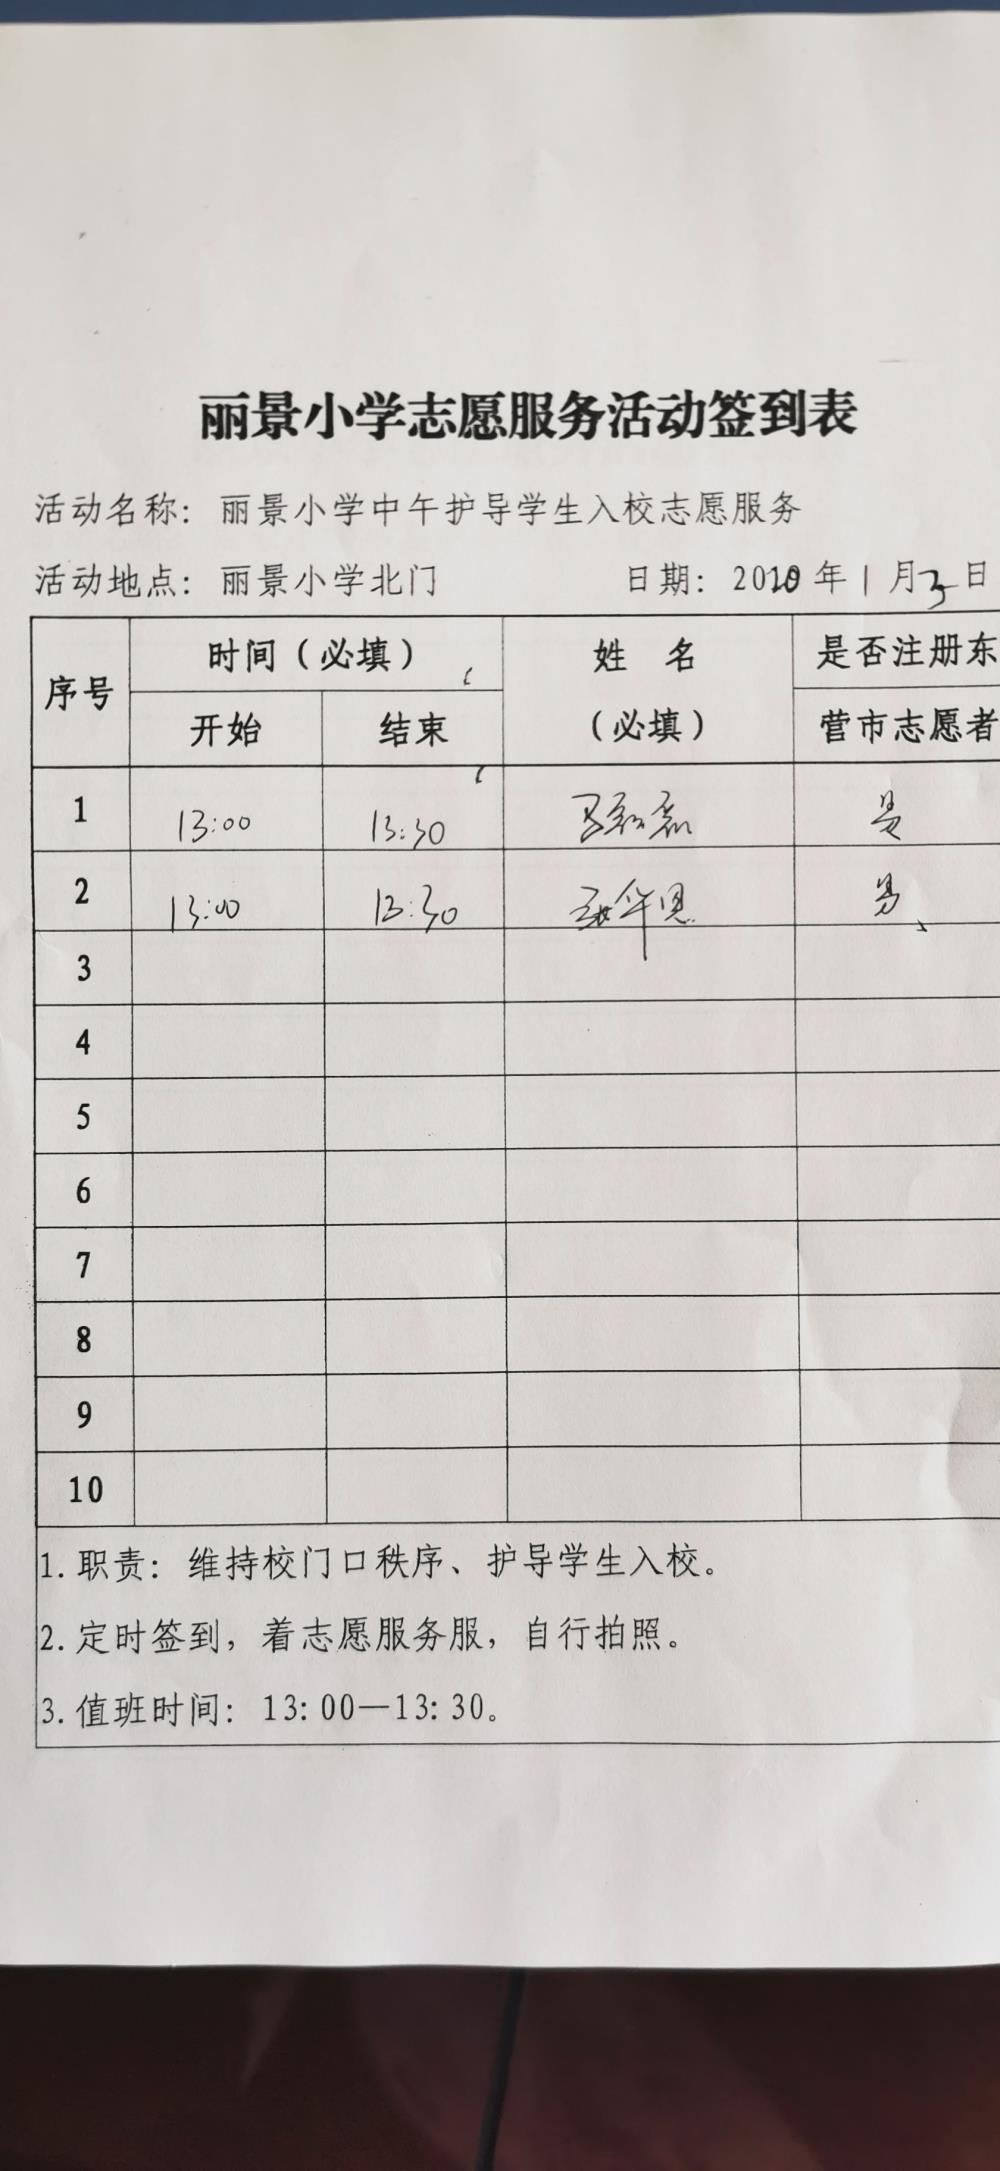 丽景小学志愿服务活动签到表
活动名称: 丽景小学中午护导学生入校志愿服务
活动地点: 丽景小学北门 日期: 2020年1月3日
序号 时间(必填) 姓 名 是否注册东
开始 结束 (必填) 营市志愿者
1 13:00 13:30 是
2 13:00 13:30 是
3
4
5
6
7
8
9
10
1. 职责: 维持校门口秩序、护导学生入校。
2. 定时签到, 着志愿服务服, 自行拍照。
3. 值班时间: 13: 00—13: 30。